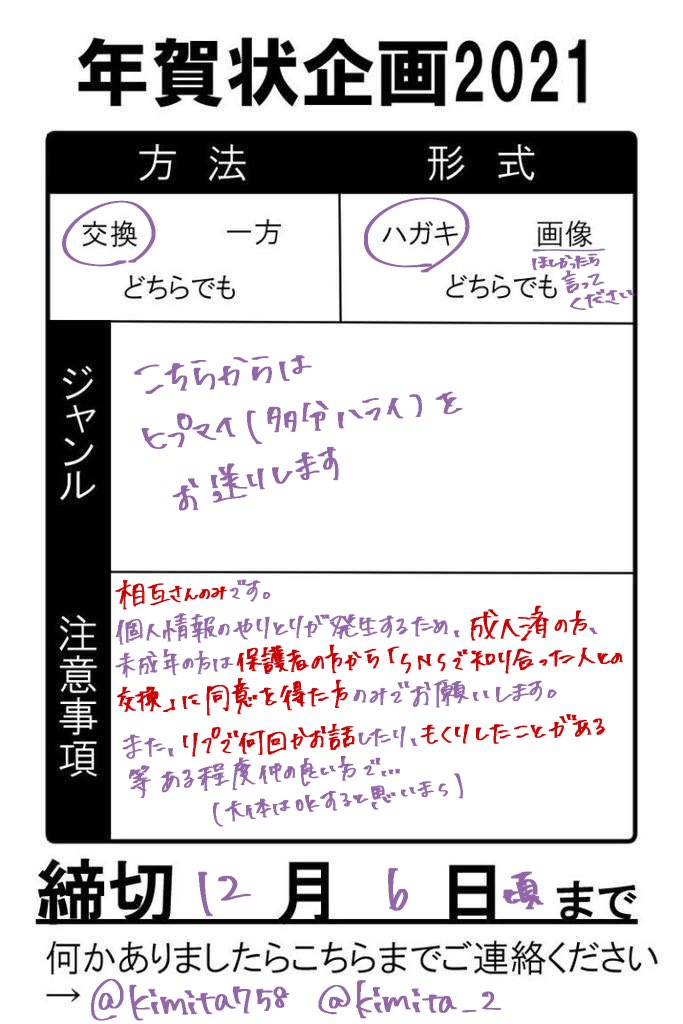 年賀状企画2021
方法 形式
交換 一方 ハガキ 画像
ほしかったら
どちらでも どちらでも 言って
ください
ジャンル
こちらからは
ヒプマイ(多分ハライ)を
お送りします
注意事項
相互さんのみです。
個人情報のやりとりが発生するため、成人済の方、
未成年の方は保護者の方から「SNSで知り合った人との
交換」に同意を得た方のみでお願いします。
また、リプで何回かお話したり、もくりしたことがある
等ある程度仲の良い方で…
(大体はOKすると思いまら)
締切12月6日頃まで
何かありましたらこちらまでご連絡ください
→@kimita758 @kimita_2